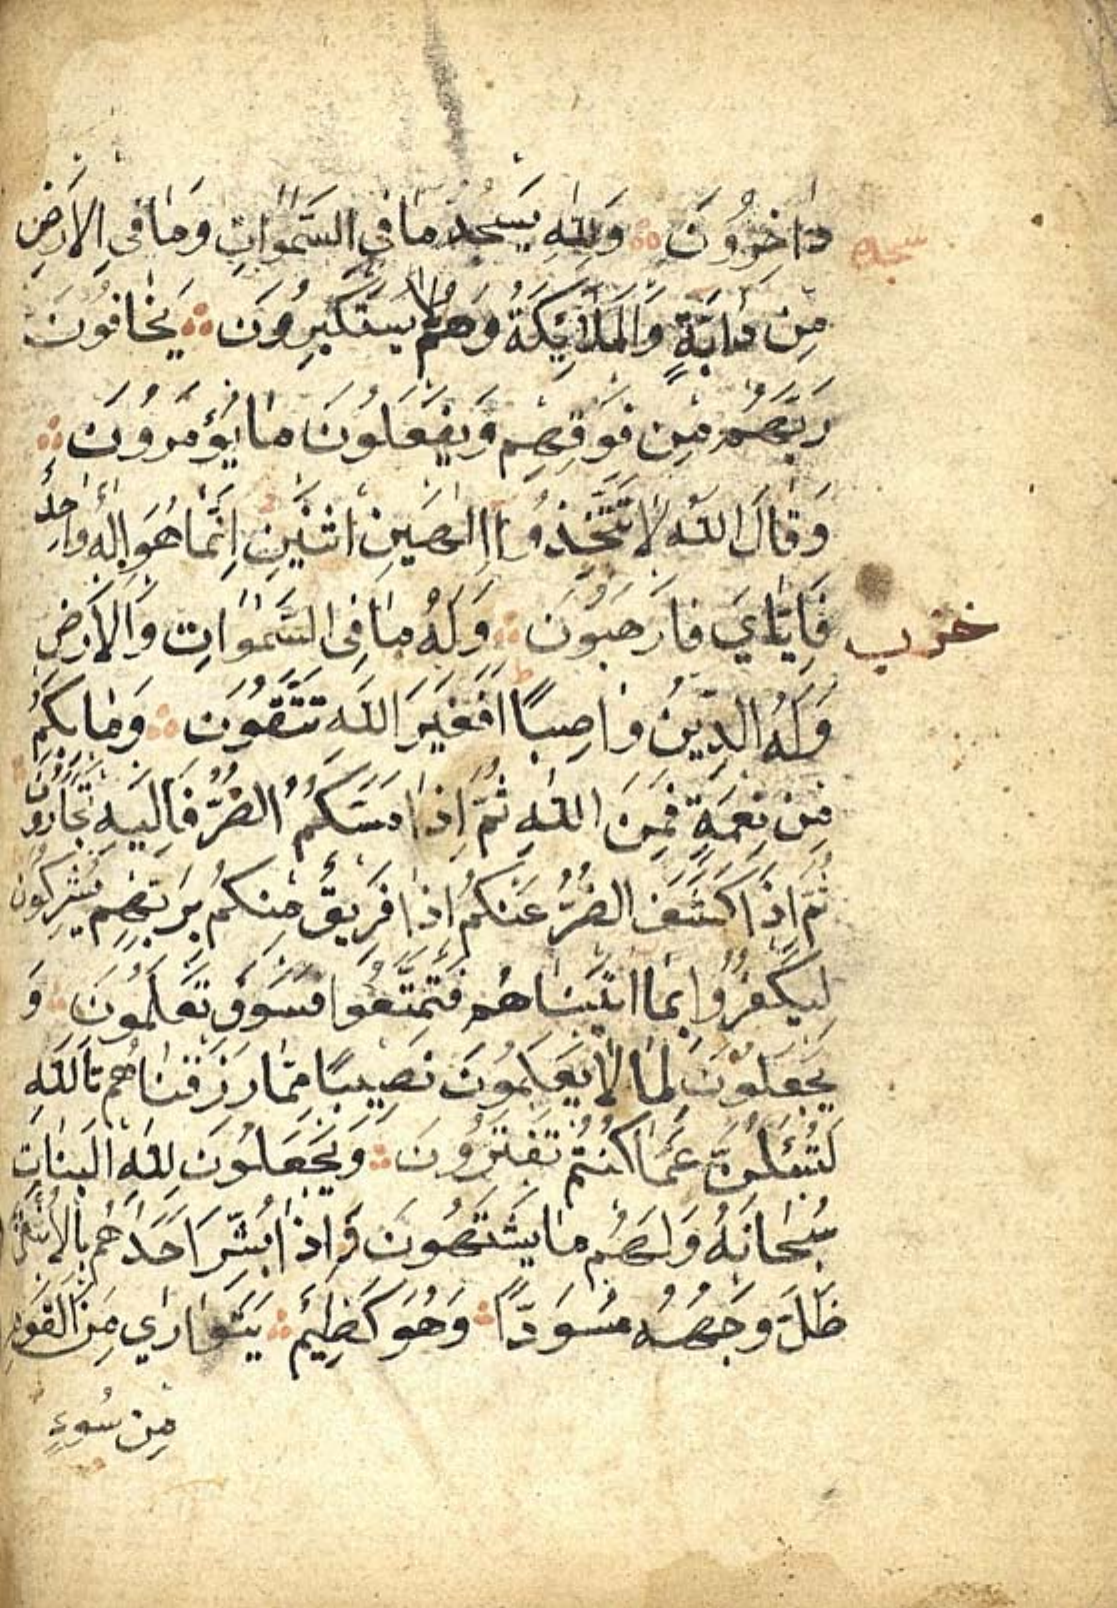 دَاخِرُونَ وَلِلّٰهِ يَسْجُدُ مَا فِي السَّمٰوَاتِ وَمَا فِي الْاَرْضِ
سجده
مِنْ دَابَّةٍ وَالْمَلَائِكَةُ وَهُمْ لَا يَسْتَكْبِرُونَ يَخَافُونَ
رَبَّهُمْ مِنْ فَوْقِهِمْ وَيَفْعَلُونَ مَا يُؤْمَرُونَ
وَقَالَ اللّٰهُ لَا تَتَّخِذُوا اِلٰهَيْنِ اثْنَيْنِ اِنَّمَا هُوَ اِلٰهٌ وَاحِدٌ
فَاِيَّايَ فَارْهَبُونَ وَلَهُ مَا فِي السَّمٰوَاتِ وَالْاَرْضِ
حزب
وَلَهُ الدِّينُ وَاصِبًا اَفَغَيْرَ اللّٰهِ تَتَّقُونَ وَمَا بِكُمْ
مِنْ نِعْمَةٍ فَمِنَ اللّٰهِ ثُمَّ اِذَا مَسَّكُمُ الضُّرُّ فَاِلَيْهِ تَجْاَرُونَ
ثُمَّ اِذَا كَشَفَ الضُّرَّ عَنْكُمْ اِذَا فَرِيقٌ مِنْكُمْ بِرَبِّهِمْ يُشْرِكُونَ
لِيَكْفُرُوا بِمَا اٰتَيْنَاهُمْ فَتَمَتَّعُوا فَسَوْفَ تَعْلَمُونَ وَ
يَجْعَلُونَ لِمَا لَا يَعْلَمُونَ نَصِيبًا مِمَّا رَزَقْنَاهُمْ تَاللّٰهِ
لَتُسْئَلُنَّ عَمَّا كُنْتُمْ تَفْتَرُونَ وَيَجْعَلُونَ لِلّٰهِ الْبَنَاتِ
سُبْحَانَهُ وَلَهُمْ مَا يَشْتَهُونَ وَاِذَا بُشِّرَ اَحَدُهُمْ بِالْاُنْثٰى
ظَلَّ وَجْهُهُ مُسْوَدًّا وَهُوَ كَظِيمٌ يَتَوَارٰي مِنَ الْقَوْمِ
مِنْ سُوءِ